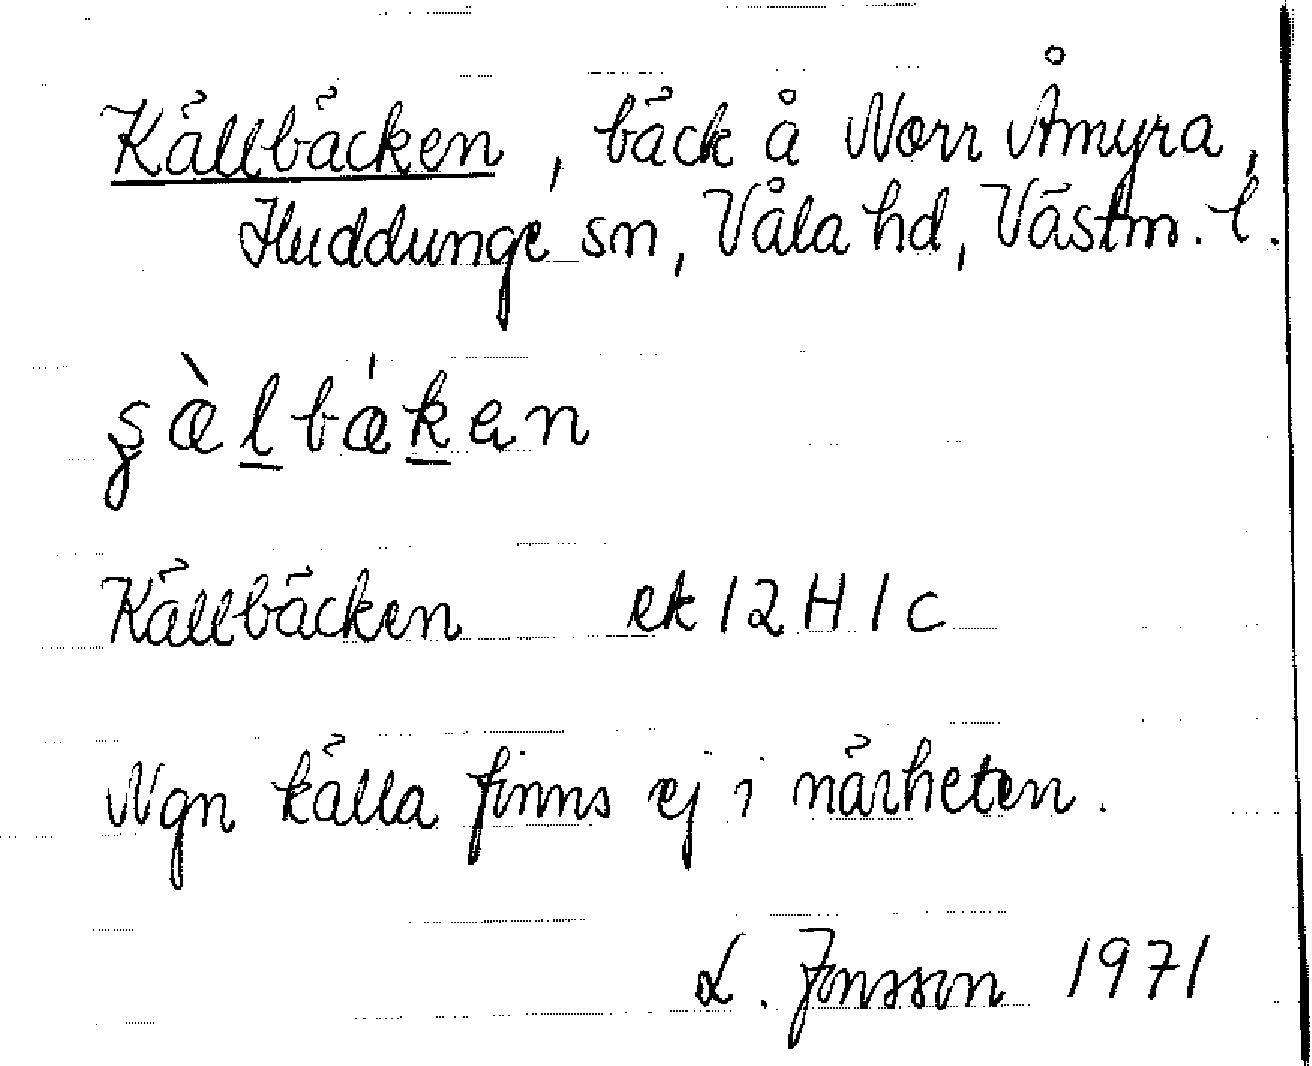 Källbäcken, bäck å Norr Åmyra,
Huddunge sn, Våla hd, Västm. l.
Källbäcken ek 12H1c
Ngn källa finns ej i närheten.
L. Jonsson 1971